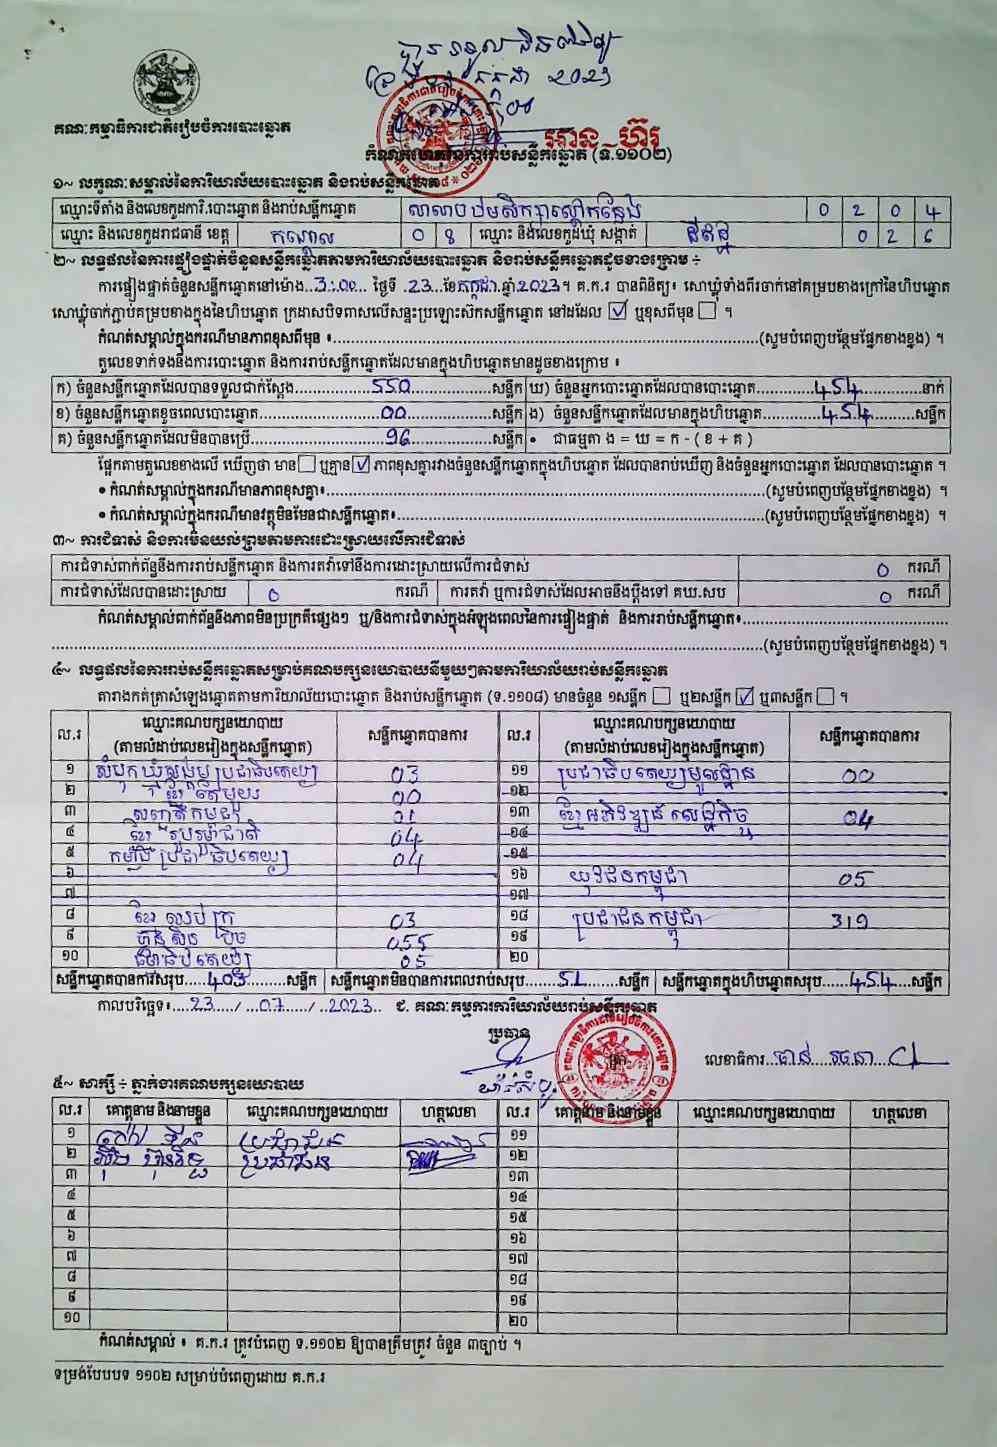 ២០២៣
គណៈកម្មាធិការជាតិរៀបចំការបោះឆ្នោត
អាន-ហ៊រ
កំណត់ហេតុនៃការរាប់សន្លឹកឆ្នោត (ទ.១១០២)
១~ លក្ខណៈសម្គាល់នៃការិយាល័យបោះឆ្នោត និងរាប់សន្លឹកឆ្នោត
ឈ្មោះទីតាំង និងលេខកូដការិ.បោះឆ្នោត និងរាប់សន្លឹកឆ្នោត 0 2 0 4
ឈ្មោះ និងលេខកូដរាជធានី ខេត្ត កណ្តាល 0 8 ឈ្មោះ និងលេខកូដឃុំ សង្កាត់ 0 2 6
២~ លទ្ធផលនៃការផ្ទៀងផ្ទាត់ចំនួនសន្លឹកឆ្នោតតាមការិយាល័យបោះឆ្នោត និងរាប់សន្លឹកឆ្នោតដូចខាងក្រោម ÷
ការផ្ទៀងផ្ទាត់ចំនួនសន្លឹកឆ្នោតនៅម៉ោង...3:00... ថ្ងៃទី ..23...ខែកក្កដា.ឆ្នាំ.2023។ គ.ក.រ បានពិនិត្យ៖ សោឃ្លុំទាំងពីរចាក់នៅគម្របខាងក្រៅនៃហិបឆ្នោត
សោឃ្លុំចាក់ភ្ជាប់គម្របខាងក្នុងនៃហិបឆ្នោត ក្រដាសបិទពាសលើសន្ទះប្រឡោះស៊កសន្លឹកឆ្នោត នៅដដែល ☑ ឬខុសពីមុន ☐ ។
កំណត់សម្គាល់ក្នុងករណីមានភាពខុសពីមុន ៖......(សូមបំពេញបន្ថែមផ្នែកខាងខ្នង) ។
តួលេខទាក់ទងនឹងការបោះឆ្នោត និងការរាប់សន្លឹកឆ្នោតដែលមានក្នុងហិបឆ្នោតមានដូចខាងក្រោម ៖
ក) ចំនួនសន្លឹកឆ្នោតដែលបានទទួលជាក់ស្តែង......550......សន្លឹក ឃ) ចំនួនអ្នកបោះឆ្នោតដែលបានបោះឆ្នោត......454......នាក់
ខ) ចំនួនសន្លឹកឆ្នោតខូចពេលបោះឆ្នោត......00......សន្លឹក ង) ចំនួនសន្លឹកឆ្នោតដែលមានក្នុងហិបឆ្នោត......454......សន្លឹក
គ) ចំនួនសន្លឹកឆ្នោតដែលមិនបានប្រើ......96......សន្លឹក • ជាធម្មតា ង = ឃ = ក - ( ខ + គ )
ផ្អែកតាមតួលេខខាងលើ ឃើញថា មាន ☐ ឬគ្មាន ☑ ភាពខុសគ្នារវាងចំនួនសន្លឹកឆ្នោតក្នុងហិបឆ្នោត ដែលបានរាប់ឃើញ និងចំនួនអ្នកបោះឆ្នោត ដែលបានបោះឆ្នោត ។
• កំណត់សម្គាល់ក្នុងករណីមានភាពខុសគ្នា៖......(សូមបំពេញបន្ថែមផ្នែកខាងខ្នង) ។
• កំណត់សម្គាល់ក្នុងករណីមានវត្ថុមិនមែនជាសន្លឹកឆ្នោត៖......(សូមបំពេញបន្ថែមផ្នែកខាងខ្នង) ។
៣~ ការជំទាស់ និងការមិនយល់ព្រមតាមការដោះស្រាយលើការជំទាស់
ការជំទាស់ពាក់ព័ន្ធនឹងការរាប់សន្លឹកឆ្នោត និងការតវ៉ាទៅនឹងការដោះស្រាយលើការជំទាស់ 0 ករណី
ការជំទាស់ដែលបានដោះស្រាយ 0 ករណី ការតវ៉ា ឬការជំទាស់ដែលអាចនឹងប្តឹងទៅ គឃ.សប 0 ករណី
កំណត់សម្គាល់ពាក់ព័ន្ធនឹងភាពមិនប្រក្រតីផ្សេងៗ ឬ/និងការជំទាស់ក្នុងអំឡុងពេលនៃការផ្ទៀងផ្ទាត់ និងការរាប់សន្លឹកឆ្នោត៖......
......(សូមបំពេញបន្ថែមផ្នែកខាងខ្នង) ។
៤~ លទ្ធផលនៃការរាប់សន្លឹកឆ្នោតសម្រាប់គណបក្សនយោបាយនីមួយៗតាមការិយាល័យរាប់សន្លឹកឆ្នោត
តារាងកត់ត្រាសំឡេងឆ្នោតតាមការិយាល័យបោះឆ្នោត និងរាប់សន្លឹកឆ្នោត (ទ.១១០៨) មានចំនួន ១សន្លឹក ☐ ឬ២សន្លឹក ☑ ឬ៣សន្លឹក ☐ ។
ល.រ ឈ្មោះគណបក្សនយោបាយ (តាមលំដាប់លេខរៀងក្នុងសន្លឹកឆ្នោត) សន្លឹកឆ្នោតបានការ ល.រ ឈ្មោះគណបក្សនយោបាយ (តាមលំដាប់លេខរៀងក្នុងសន្លឹកឆ្នោត) សន្លឹកឆ្នោតបានការ
១ សំបុកឃ្មុំសង្គមប្រជាធិបតេយ្យ 03 ១១ ប្រជាធិបតេយ្យមូលដ្ឋាន 00
២ ខ្មែរតែមួយ 00 ១២
៣ សញ្ជាតិកម្ពុជា 01 ១៣ ខ្មែរអភិវឌ្ឍន៍សេដ្ឋកិច្ច 04
៤ ខ្មែររួបរួមជាតិ 04 ១៤
៥ កម្លាំងប្រជាធិបតេយ្យ 04 ១៥
៦ ១៦ យុវជនកម្ពុជា 05
៧ ១៧
៨ ខ្មែរឈប់ក្រ 03 ១៨ ប្រជាជនកម្ពុជា 319
៩ ហ៊្វុនស៊ិនប៉ិច 055 ១៩
១០ ធម្មាធិបតេយ្យ 05 ២០
សន្លឹកឆ្នោតបានការសរុប...403...សន្លឹក សន្លឹកឆ្នោតមិនបានការពេលរាប់សរុប......51......សន្លឹក សន្លឹកឆ្នោតក្នុងហិបឆ្នោតសរុប.....454....សន្លឹក
កាលបរិច្ឆេទ៖....23..../...07..../..2023.. ជ. គណៈកម្មការការិយាល័យរាប់សន្លឹកឆ្នោត
ប្រធាន
លេខាធិការ....
៥~ សាក្សី ÷ ភ្នាក់ងារគណបក្សនយោបាយ
ល.រ គោត្តនាម និងនាមខ្លួន ឈ្មោះគណបក្សនយោបាយ ហត្ថលេខា ល.រ គោត្តនាម និងនាមខ្លួន ឈ្មោះគណបក្សនយោបាយ ហត្ថលេខា
១ ប្រជាជន ១១
២ ប្រជាជន ១២
៣ ១៣
៤ ១៤
៥ ១៥
៦ ១៦
៧ ១៧
៨ ១៨
៩ ១៩
១០ ២០
កំណត់សម្គាល់ ៖ គ.ក.រ ត្រូវបំពេញ ទ.១១០២ ឱ្យបានត្រឹមត្រូវ ចំនួន ៣ច្បាប់ ។
ទម្រង់បែបបទ ១១០២ សម្រាប់បំពេញដោយ គ.ក.រ